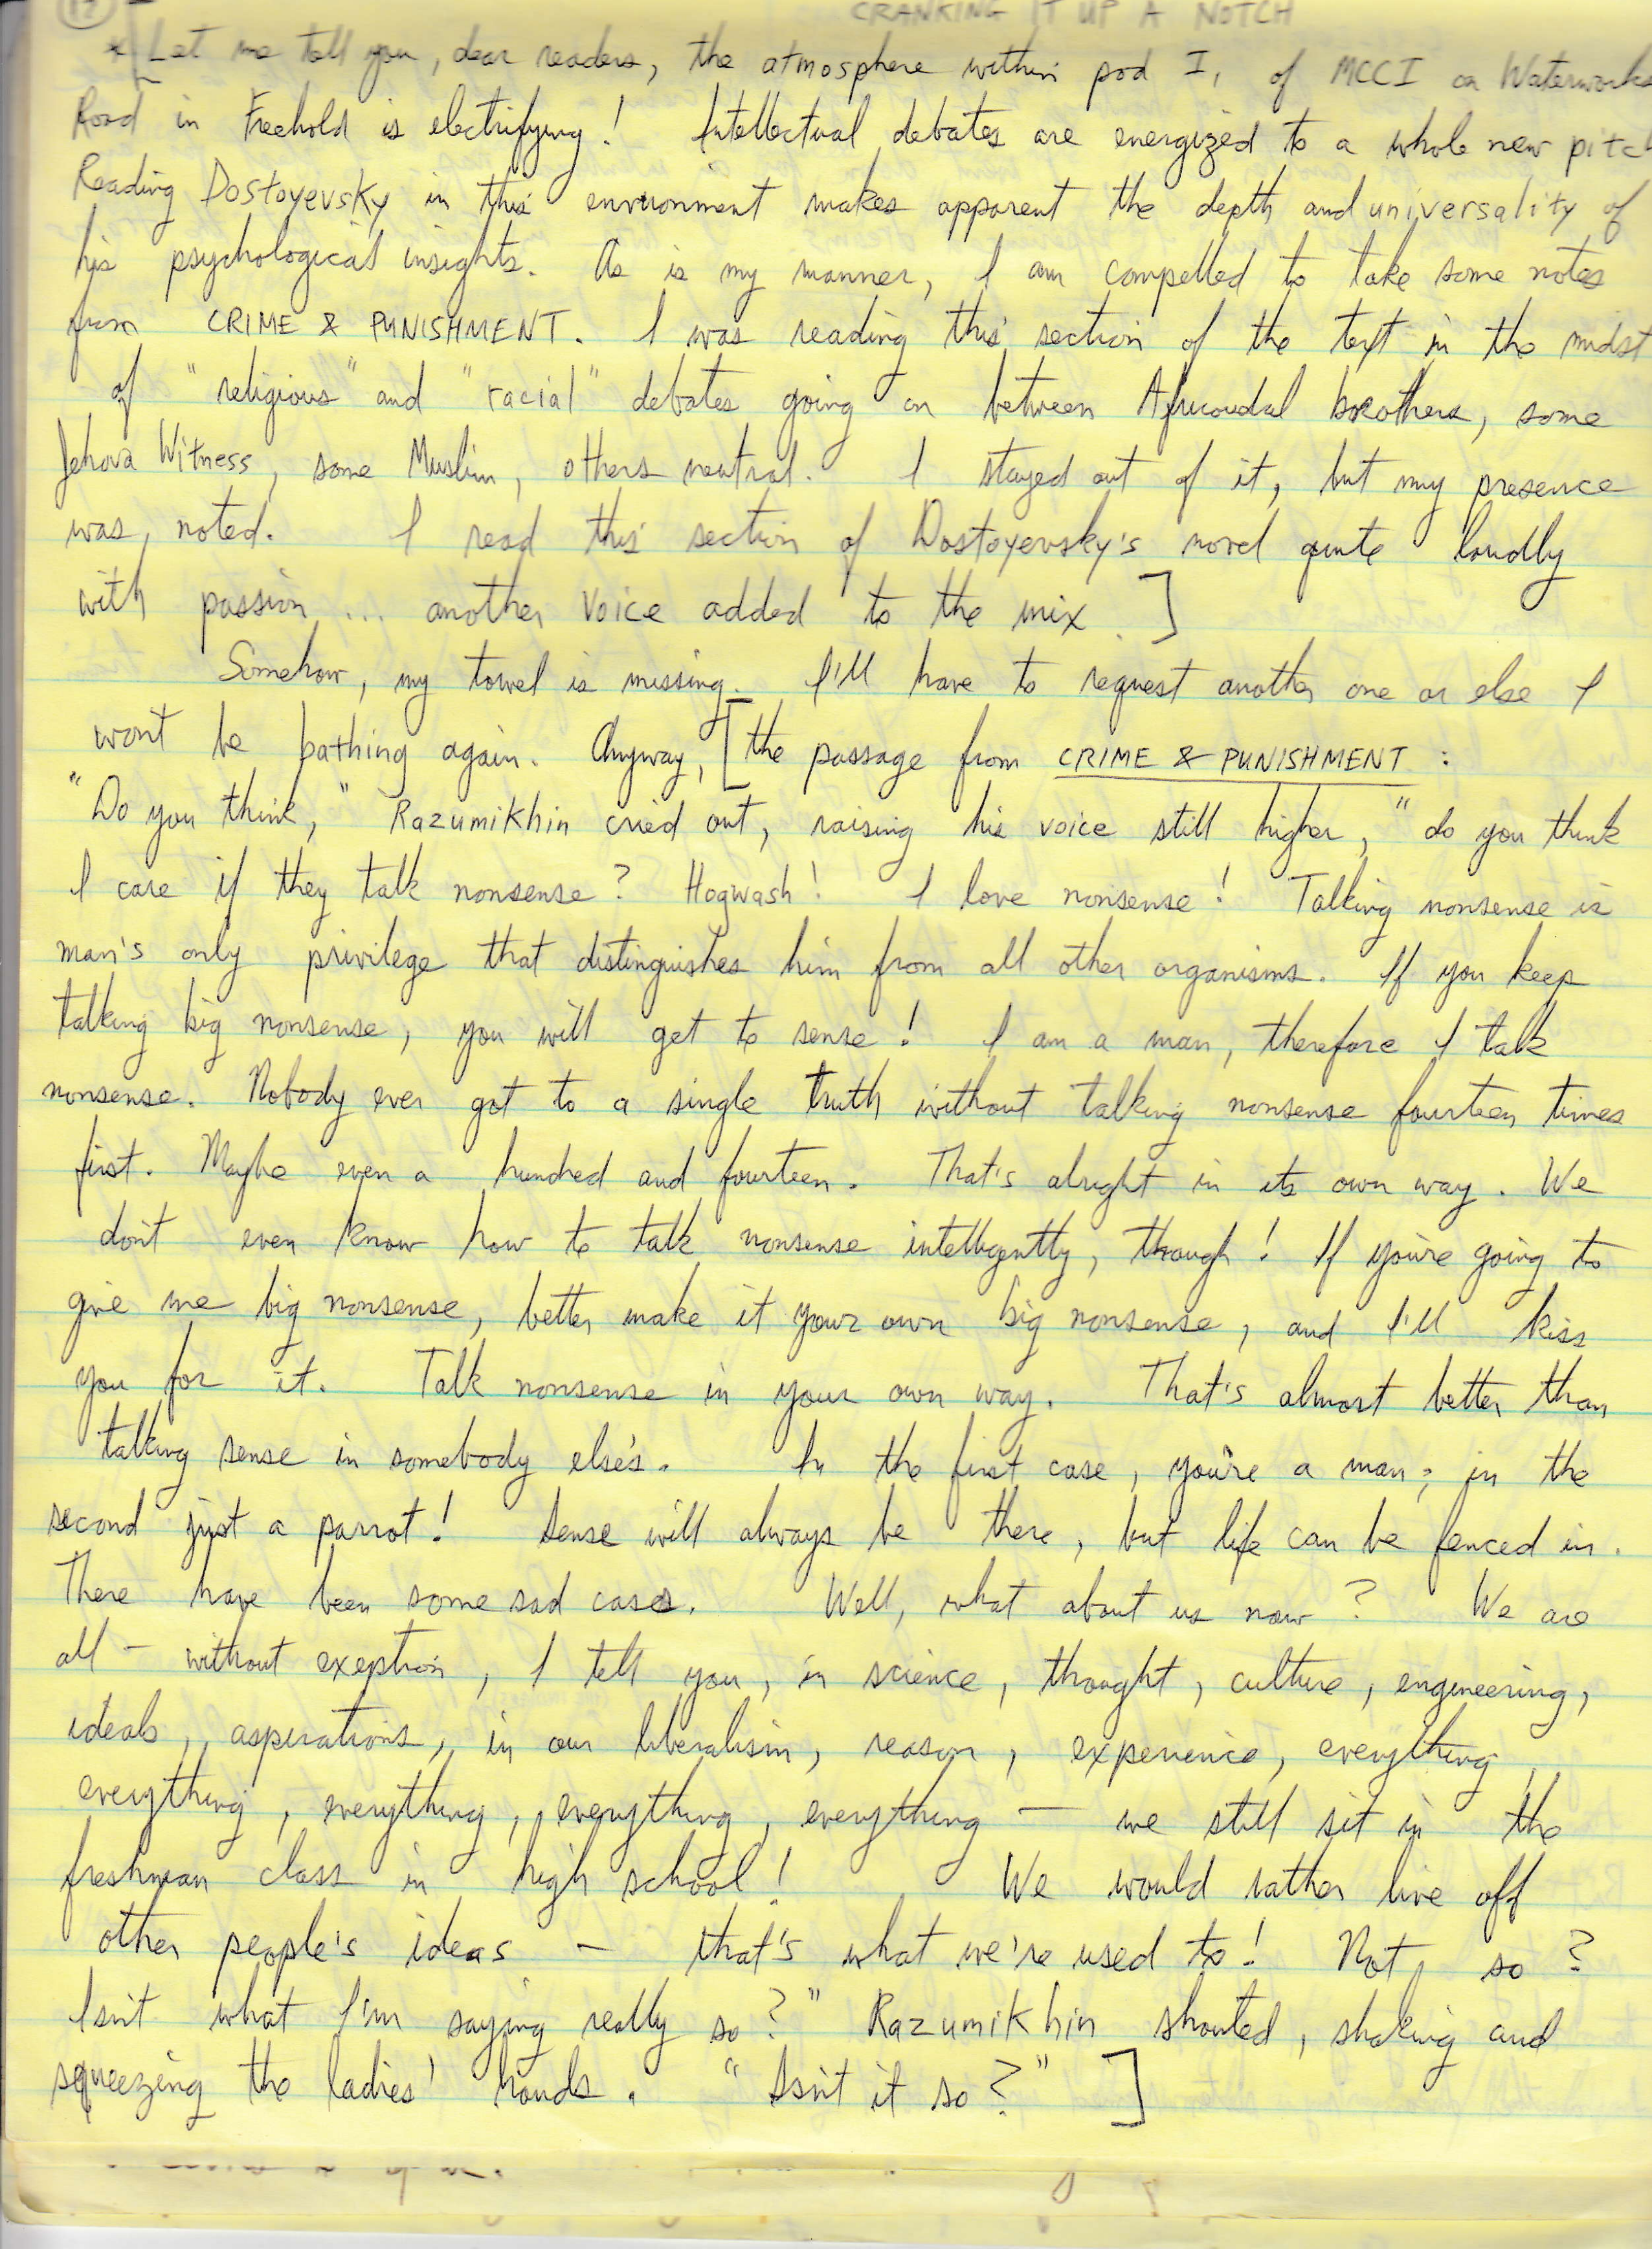 CRANKING IT UP A NOTCH
* [Let me tell you, dear readers, the atmosphere within pod I, of MCCI on Waterworks
Road in Freehold is electrifying! Intellectual debates are energized to a whole new pitch
Reading Dostoyevsky in this environment makes apparent the depth and universality of
his psychological insights. As is my manner, I am compelled to take some notes
from CRIME & PUNISHMENT. I was reading this section of the text in the midst
of "religious" and "racial" debates going on between brothers, some
Jehova Witness, some Muslim, others neutral. I stayed out of it, but my presence
was noted. I read this section of Dostoyevsky's novel quite loudly
with passion ... another voice added to the mix.]
Somehow, my towel is missing. I'll have to request another one or else I
won't be bathing again. Anyway, [the passage from CRIME & PUNISHMENT :
"Do you think," Razumikhin cried out, raising his voice still higher, "do you think
I care if they talk nonsense? Hogwash! I love nonsense! Talking nonsense is
man's only privilege that distinguishes him from all other organisms. If you keep
talking big nonsense, you will get to sense! I am a man, therefore I talk
nonsense. Nobody ever got to a single truth without talking nonsense fourteen times
first. Maybe even a hundred and fourteen. That's alright in its own way. We
don't even know how to talk nonsense intelligently, though! If you're going to
give me big nonsense, better make it your own big nonsense, and I'll kiss
you for it. Talk nonsense in your own way. That's almost better than
talking sense in somebody else's. In the first case, you're a man; in the
second just a parrot! Sense will always be there, but life can be fenced in.
There have been some sad cases. Well, what about us now? We are
all - without exeption, I tell you, in science, thought, culture, engineering,
ideals, aspirations, in our liberalism, reason, experience, everything,
everything, everything, everything, everything — we still sit in the
freshman class in high school! We would rather live off
other people's ideas - that's what we're used to! Not so?
Isn't what I'm saying really so?" Razumikhin shouted, shaking and
squeezing the ladies' hands. "Isn't it so?" ]